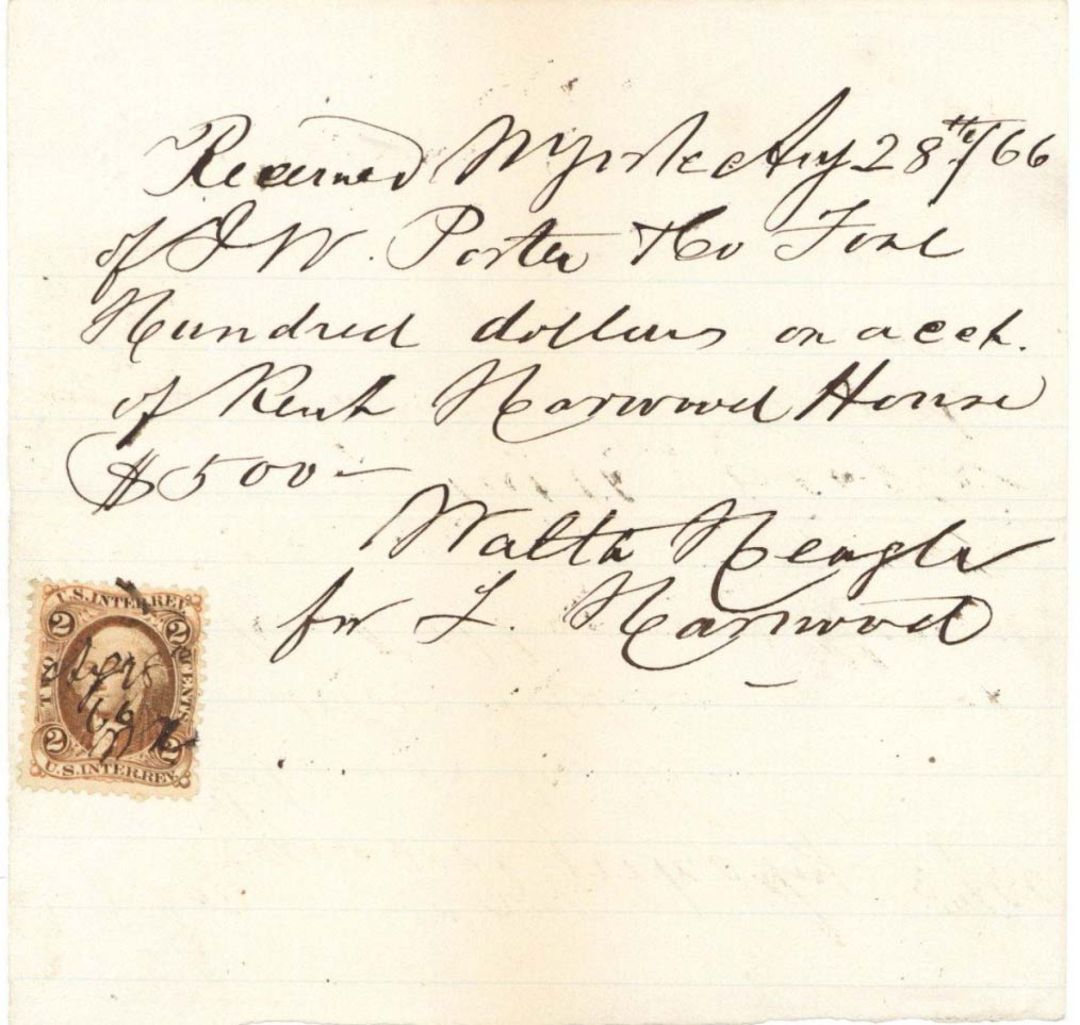 Received Aug 28th/66
of J W. Porter & Co Five
Hundred dollars on acct.
of Rent Harwood House
$500-
Walter
for L. Harwood
U.S. INTER. REV.
2 2
TWO CENTS
Aug 28
66
2 2
U.S. INTER. REV.